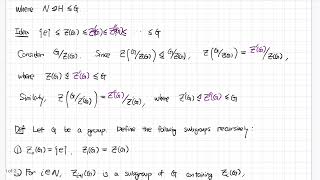 where N ⊴ H ≤ G.
Idea {e} ≤ Z(G) ≤ Z²(G) ≤ Z³(G) ≤ ... ≤ G
Consider G/Z(G). Since Z(G/Z(G)) ⊴ G/Z(G), Z(G/Z(G)) = Z²(G)/Z(G),
where Z(G) ⊴ Z²(G) ≤ G
Similarly, Z(G/Z²(G)) = Z³(G)/Z²(G), where Z²(G) ⊴ Z³(G) ≤ G
Def Let G be a group. Define the following subgroups recursively:
① Z₀(G) = {e}, Z₁(G) = Z(G)
② For i∈N, Zᵢ₊₁(G) is a subgroup of G containing Zᵢ(G),